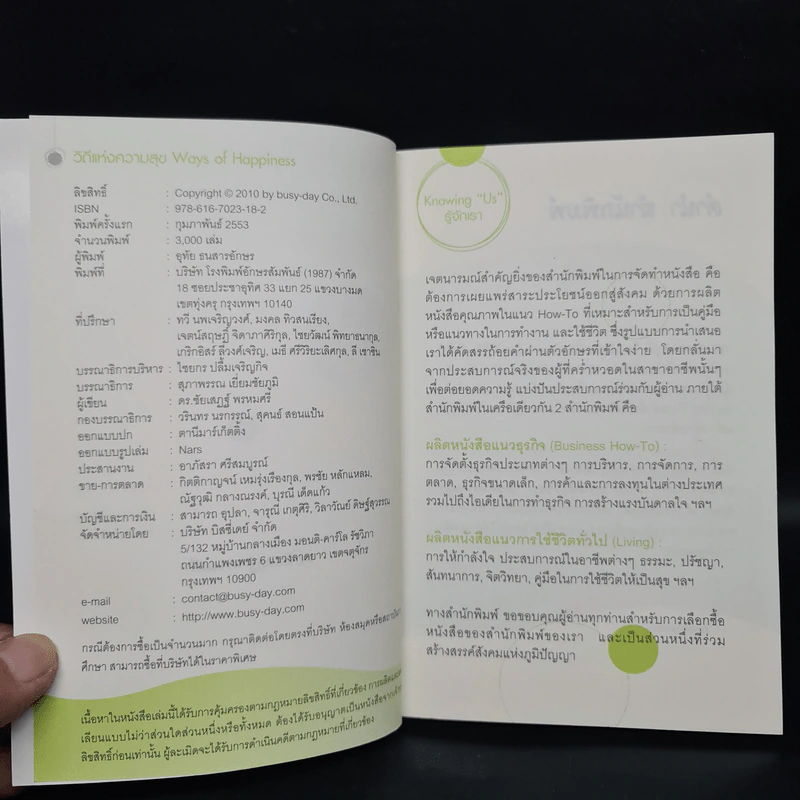 วิถีแห่งความสุข Ways of Happiness
ลิขสิทธิ์ : Copyright © 2010 by busy-day Co., Ltd.
ISBN : 978-616-7023-18-2
พิมพ์ครั้งแรก : กุมภาพันธ์ 2553
จำนวนพิมพ์ : 3,000 เล่ม
ผู้พิมพ์ : อุทัย ธนสารอักษร
พิมพ์ที่ : บริษัท โรงพิมพ์อักษรสัมพันธ์ (1987) จำกัด
18 ซอยประชาอุทิศ 33 แยก 25 แขวงบางมด
เขตทุ่งครุ กรุงเทพฯ 10140
ที่ปรึกษา : ทวี นพเจริญวงศ์, มงคล ทิวสนเรียง,
เจตน์สฤษฎิ์ จิดาภาศิริกุล, ไชยวัฒน์ พิทยาธนากุล,
เกริกอิสร์ ลีวงศ์เจริญ, เมธี ศรีวิริยะเลิศกุล, ลี เซาชิน
บรรณาธิการบริหาร : ไชยกร ปลื้มเจริญกิจ
บรรณาธิการ : สุภาพรรณ เยี่ยมชัยภูมิ
ผู้เขียน : ดร.ชัยเสฏฐ์ พรหมศรี
กองบรรณาธิการ : วรินทร นรกรรณ์, สุคนธ์ สอนแป้น
ออกแบบปก : ตานีมาร์เก็ตติ้ง
ออกแบบรูปเล่ม : Nars
ประสานงาน : อาภัสรา ศรีสมบูรณ์
ขาย-การตลาด : กิตติกาญจน์ เหมรุ่งเรืองกุล, พรชัย หลักแหลม,
ณัฐวุฒิ กลางณรงค์, บุรณี เด็ดแก้ว
บัญชีและการเงิน : สามารถ อุปลา, จารุณี เกตุศิริ, วิลาวัณย์ ดิษฐ์สุวรรณ
จัดจำหน่ายโดย : บริษัท บิสซี่เดย์ จำกัด
5/132 หมู่บ้านกลางเมือง มอนติ-คาร์โล รัชวิภา
ถนนกำแพงเพชร 6 แขวงลาดยาว เขตจตุจักร
กรุงเทพฯ 10900
e-mail : contact@busy-day.com
website : http://www.busy-day.com
กรณีต้องการซื้อเป็นจำนวนมาก กรุณาติดต่อโดยตรงที่บริษัท ห้องสมุดหรือสถาบัน
ศึกษา สามารถซื้อที่บริษัทได้ในราคาพิเศษ
เนื้อหาในหนังสือเล่มนี้ได้รับการคุ้มครองตามกฎหมายลิขสิทธิ์ที่เกี่ยวข้อง การผลิต
เลียนแบบไม่ว่าส่วนใดส่วนหนึ่งหรือทั้งหมด ต้องได้รับอนุญาตเป็นหนังสือจาก
ลิขสิทธิ์ก่อนเท่านั้น ผู้ละเมิดจะได้รับการดำเนินคดีตามกฎหมายที่เกี่ยวข้อง
Knowing "Us"
รู้จักเรา
เจตนารมณ์สำคัญยิ่งของสำนักพิมพ์ในการจัดทำหนังสือ คือ
ต้องการเผยแพร่สาระประโยชน์ออกสู่สังคม ด้วยการผลิต
หนังสือคุณภาพในแนว How-To ที่เหมาะสำหรับการเป็นคู่มือ
หรือแนวทางในการทำงาน และใช้ชีวิต ซึ่งรูปแบบการนำเสนอ
เราได้คัดสรรถ้อยคำผ่านตัวอักษรที่เข้าใจง่าย โดยกลั่นมา
จากประสบการณ์จริงของผู้ที่คร่ำหวอดในสาขาอาชีพนั้นๆ
เพื่อต่อยอดความรู้ แบ่งปันประสบการณ์ร่วมกับผู้อ่าน ภายใต้
สำนักพิมพ์ในเครือเดียวกัน 2 สำนักพิมพ์ คือ
ผลิตหนังสือแนวธุรกิจ (Business How-To) :
การจัดตั้งธุรกิจประเภทต่างๆ การบริหาร, การจัดการ, การ
ตลาด, ธุรกิจขนาดเล็ก, การค้าและการลงทุนในต่างประเทศ
รวมไปถึงไอเดียในการทำธุรกิจ การสร้างแรงบันดาลใจ ฯลฯ
ผลิตหนังสือแนวการใช้ชีวิตทั่วไป (Living) :
การให้กำลังใจ ประสบการณ์ในอาชีพต่างๆ ธรรมะ, ปรัชญา,
สันทนาการ, จิตวิทยา, คู่มือในการใช้ชีวิตให้เป็นสุข ฯลฯ
ทางสำนักพิมพ์ ขอขอบคุณผู้อ่านทุกท่านสำหรับการเลือกซื้อ
หนังสือของสำนักพิมพ์ของเรา และเป็นส่วนหนึ่งที่ร่วม
สร้างสรรค์สังคมแห่งภูมิปัญญา